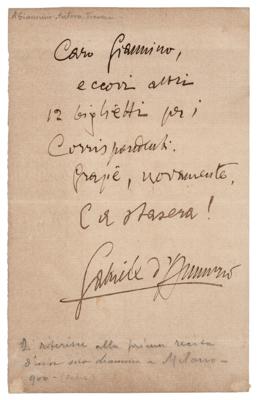 A Giannino Antona Traversi
Caro Giannino,
eccovi altri
12 biglietti per i
Corrispondenti.
Grazie, novamente,
E a stasera!
Gabriele d'Annunzio
Si riferisce alla prima recita
d'un suo dramma a Milano
900